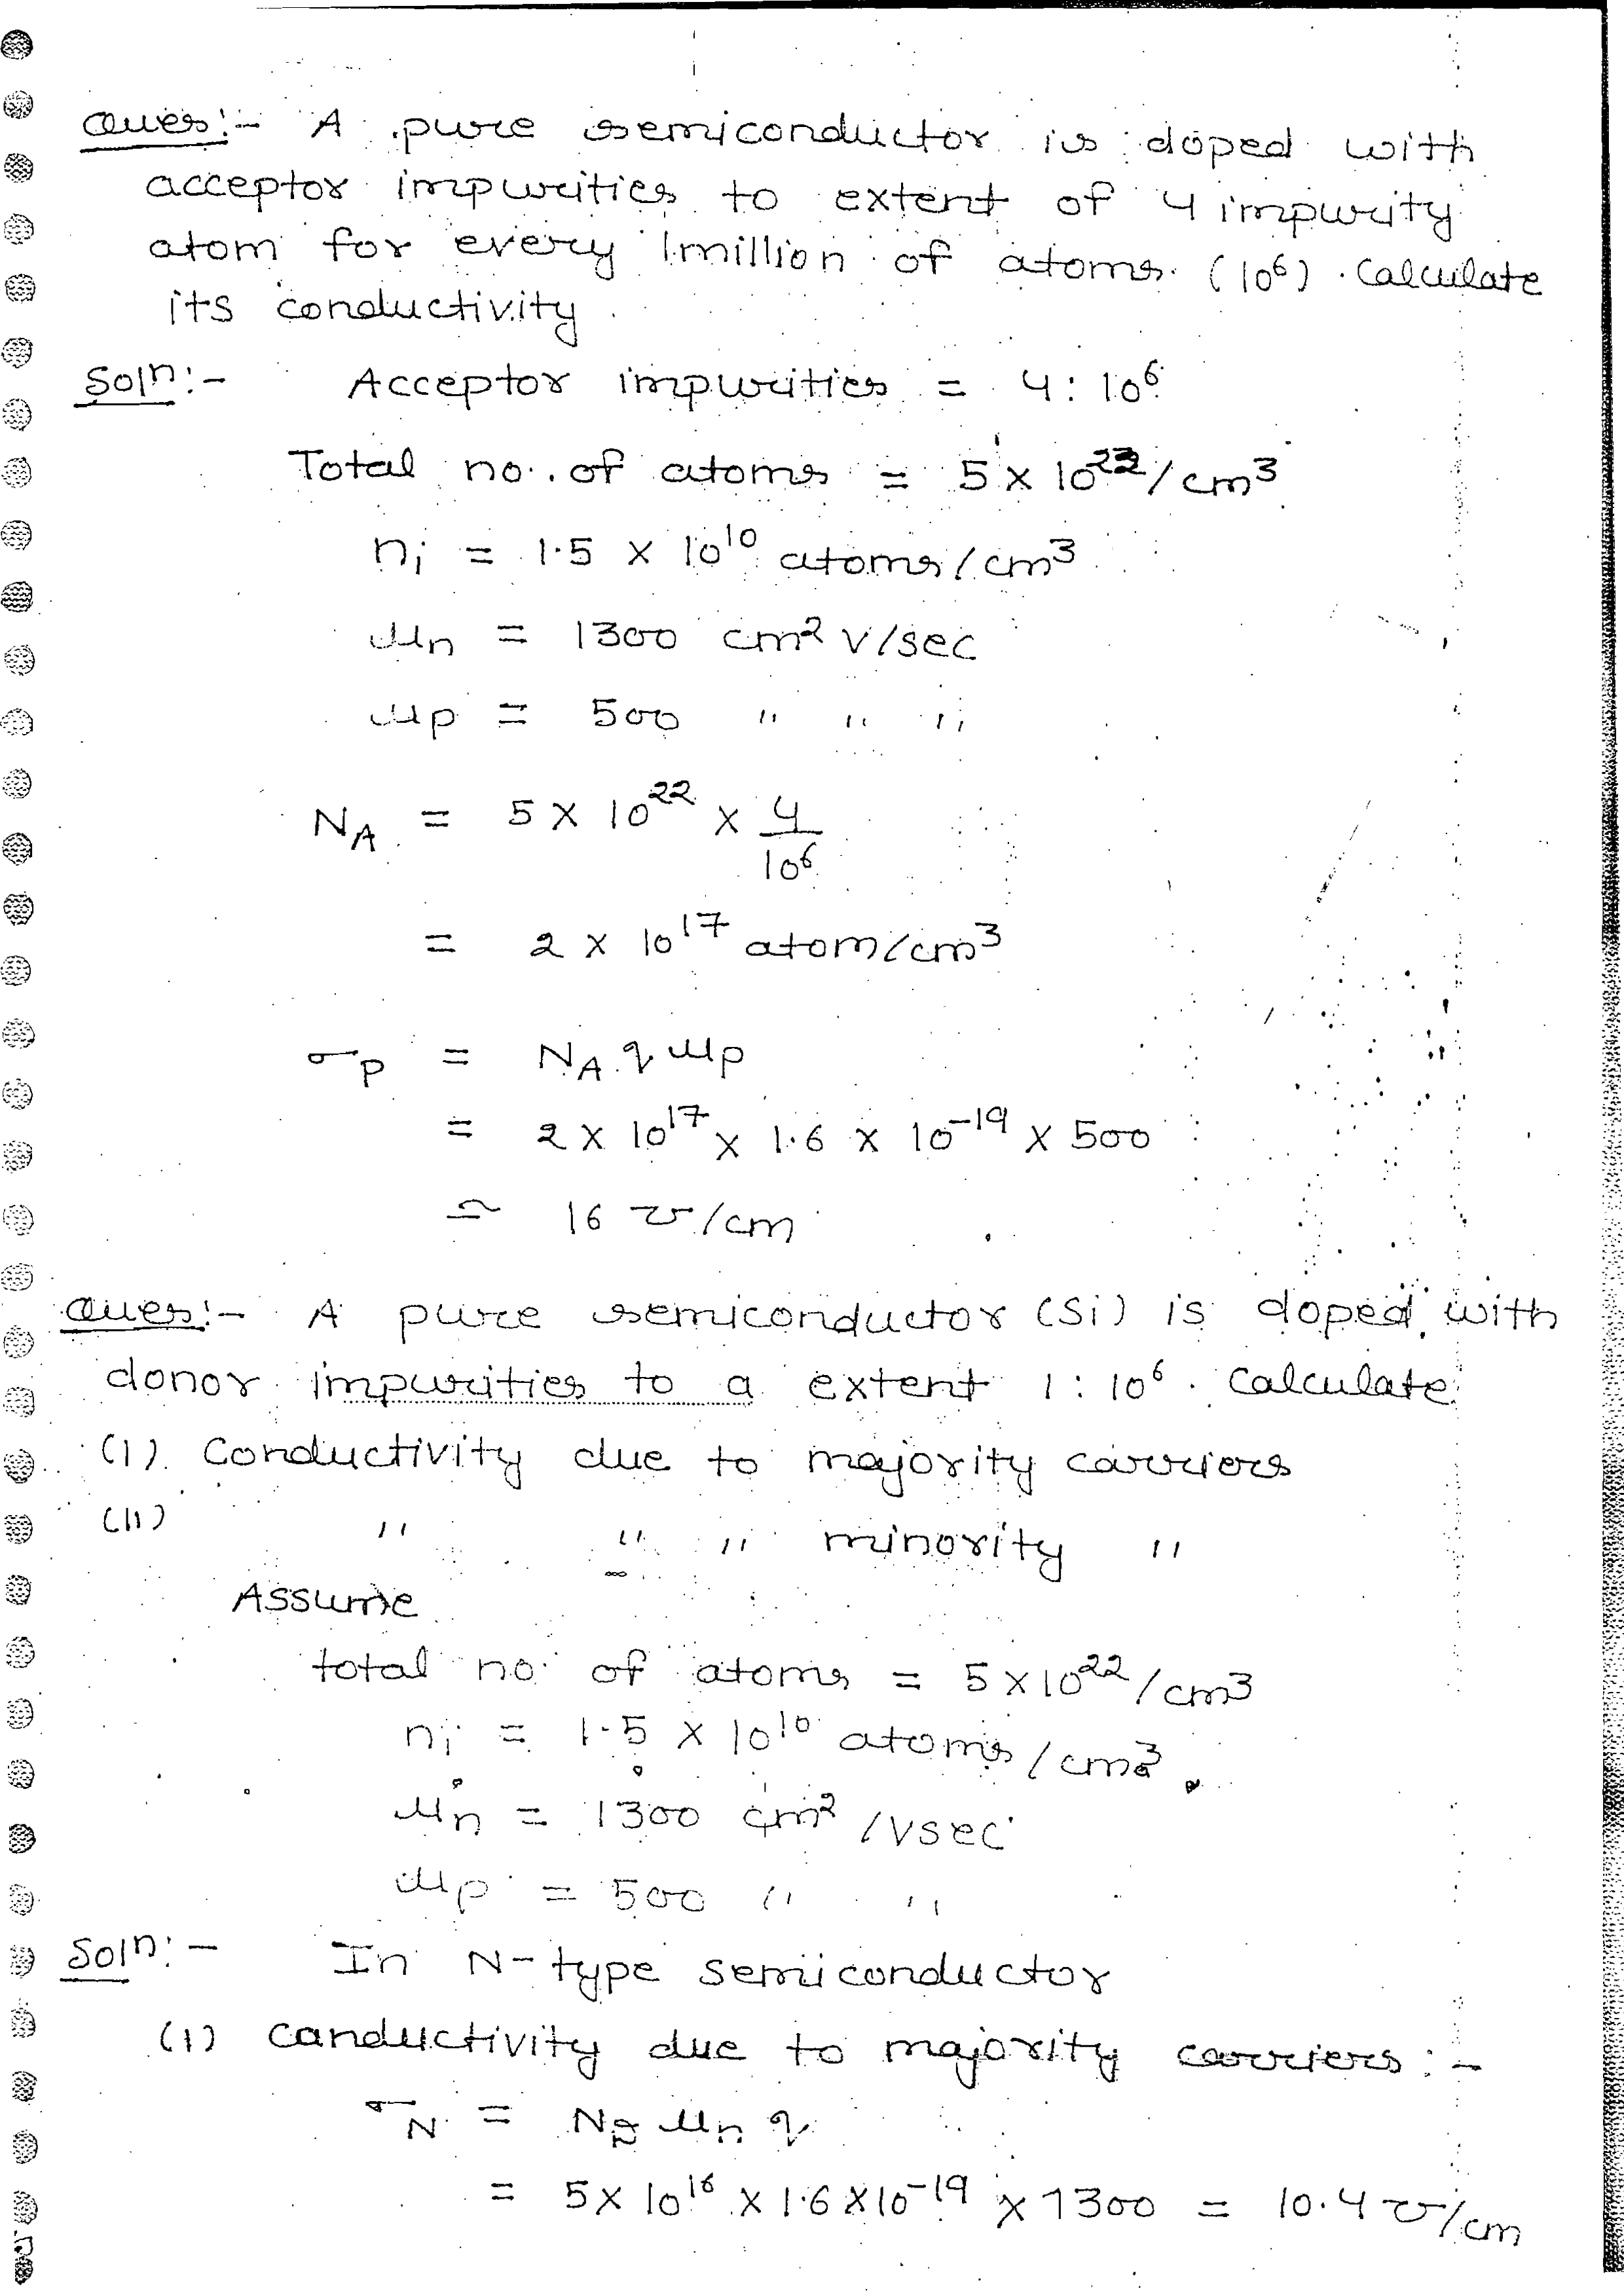 Ques:- A pure semiconductor is doped with
acceptor impurities to extent of 4 impurity
atom for every 1million of atoms (10⁶). Calculate
its conductivity.
Solⁿ:- Acceptor impurities = 4:10⁶
Total no. of atoms = 5 × 10²² / cm³
nᵢ = 1.5 × 10¹⁰ atoms / cm³
μn = 1300 cm² V/sec
μp = 500 " " "
N_A = 5 × 10²² × 4/10⁶
= 2 × 10¹⁷ atom/cm³
σ_P = N_A q μp
= 2 × 10¹⁷ × 1.6 × 10⁻¹⁹ × 500
≃ 16 ℧/cm
Ques:- A pure semiconductor (Si) is doped with
donor impurities to a extent 1:10⁶. Calculate
(I) Conductivity due to majority carriers
(II) " " " minority "
Assume
total no. of atoms = 5 × 10²² / cm³
nᵢ = 1.5 × 10¹⁰ atoms / cm³
μn = 1300 cm² / Vsec
μp = 500 " "
Solⁿ:- In N-type semiconductor
(I) canductivity due to majority carriers:-
σ_N = N_D μn q
= 5 × 10¹⁶ × 1.6 × 10⁻¹⁹ × 1300 = 10.4 ℧/cm